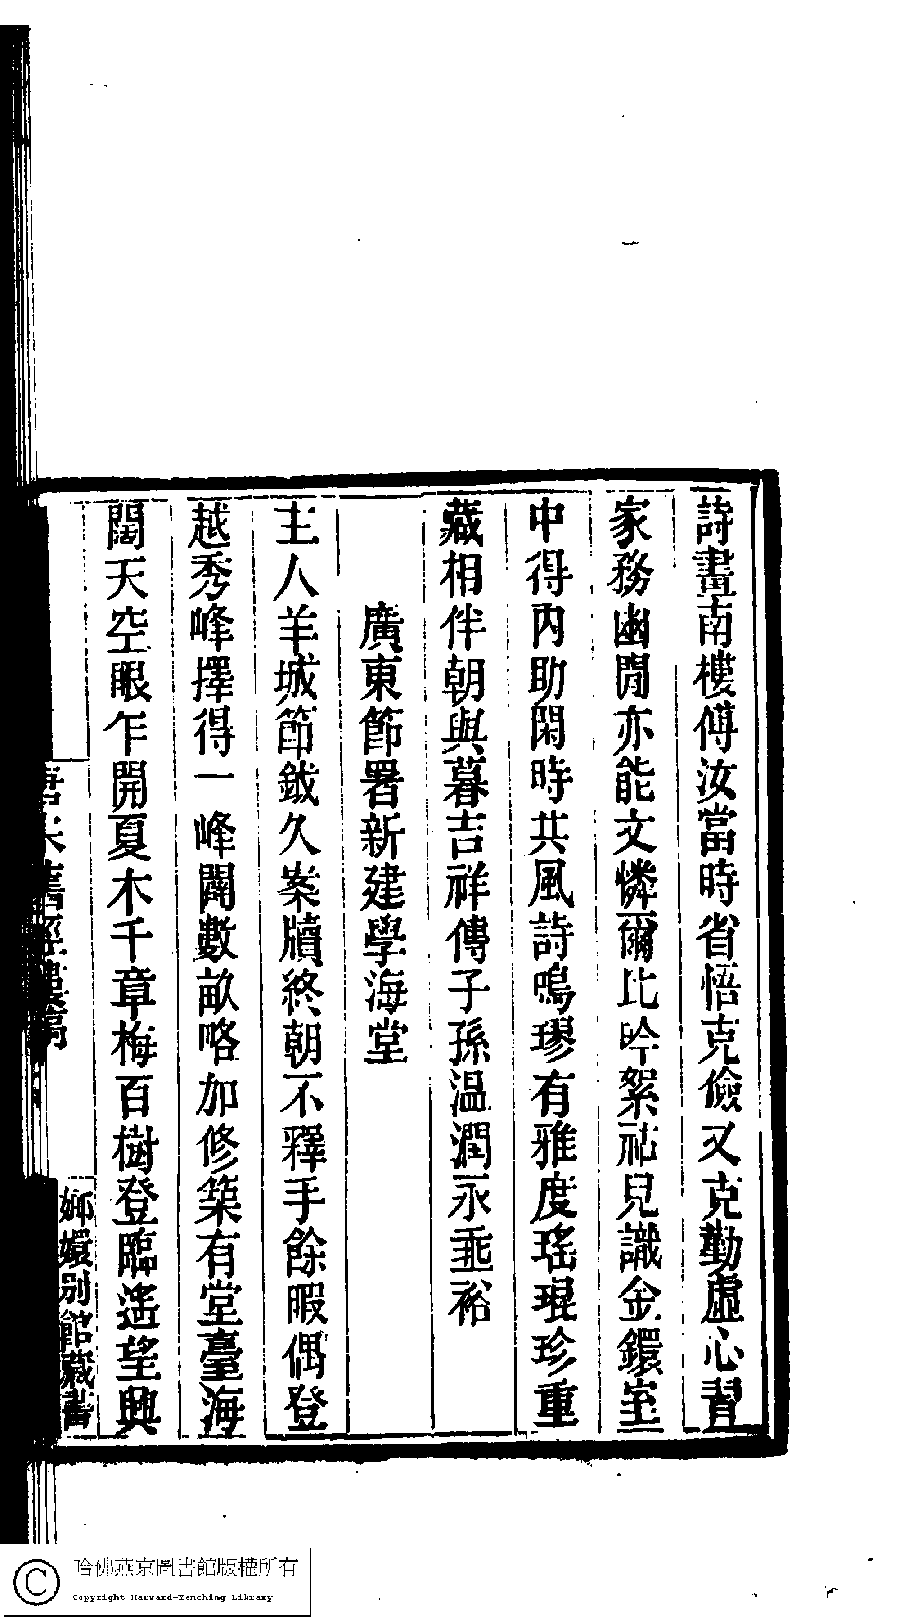 詩畫南樓傅汝當時省悟克儉又克勤虛心習
家務幽閒亦能文憐爾比吟絮祐兒識金鐶室
中得內助閑時共風詩鳴璆有雅度瑤琨珍重
藏相伴朝與暮吉祥傳子孫温潤永垂裕
廣東節署新建學海堂
主人羊城節鉞久案牘終朝不釋手餘暇偶登
越秀峰擇得一峰闢數畝略加修築有堂臺海
闊天空眼乍開夏木千章梅百樹登臨遙望興
舊經樓稿
嫏嬛別館藏書
哈佛燕京圖書館版權所有
Copyright Harvard-Yenching Library